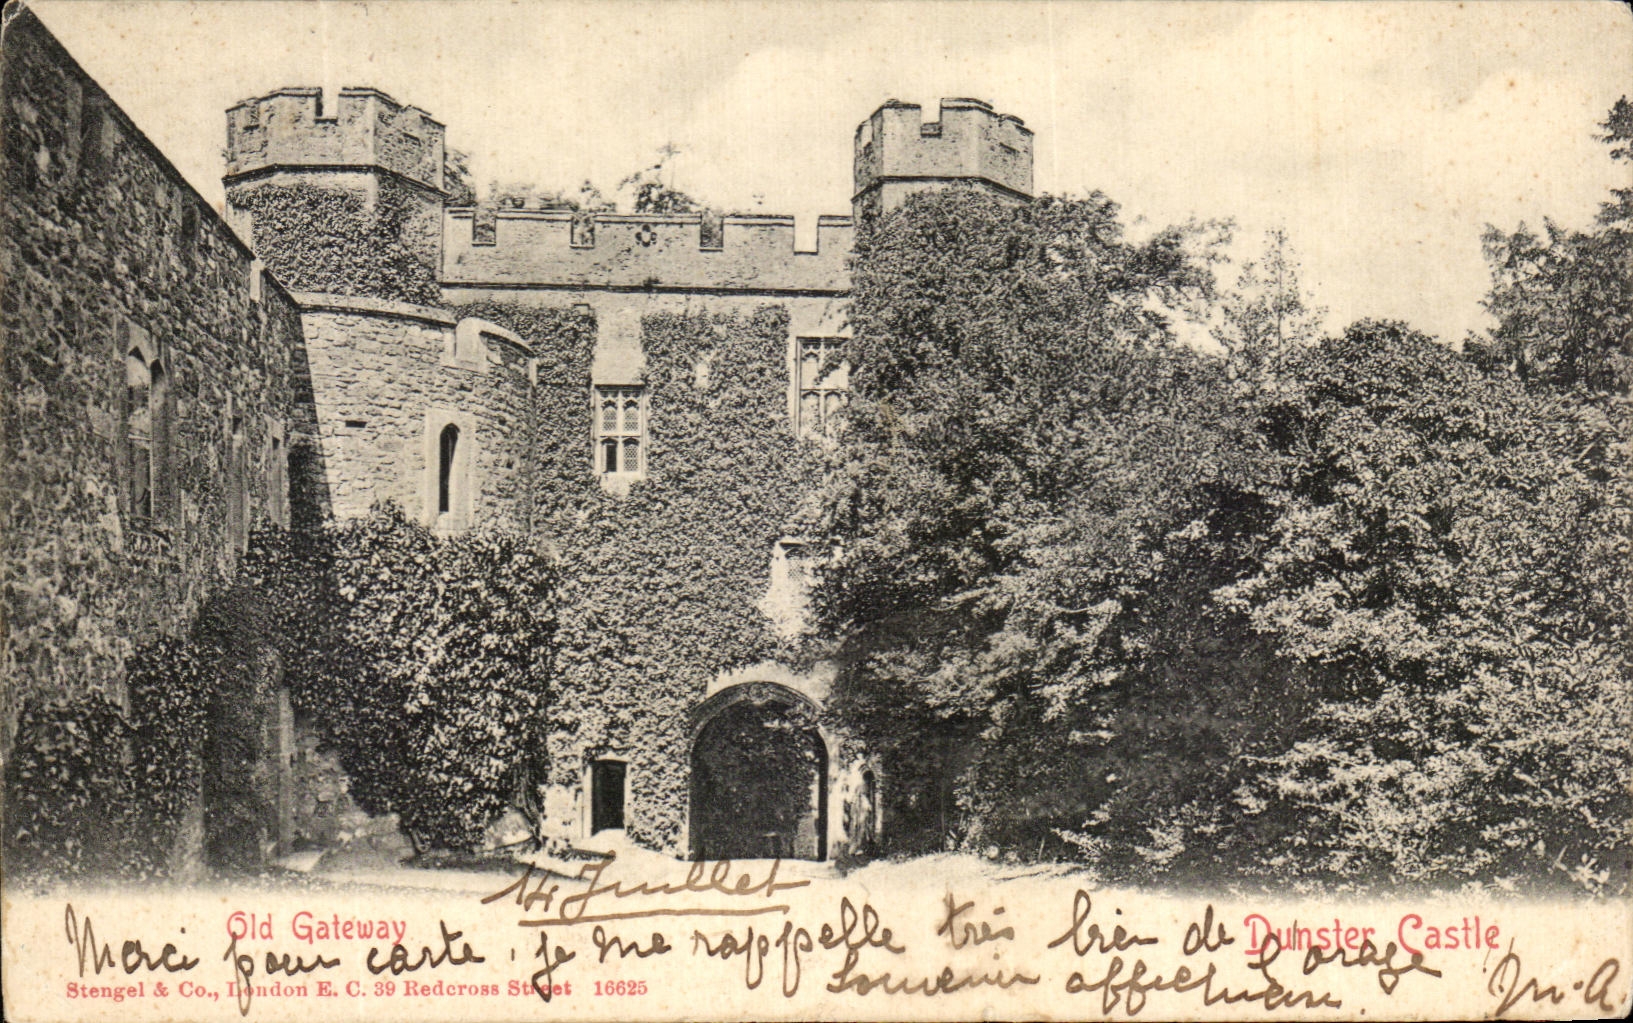 14 Juillet
Old Gateway
Dunster Castle
Merci pour carte, je me rappelle très bien de l'orage
Souvenir affectueux.
M. A.
Stengel & Co., London E. C. 39 Redcross Street 16625